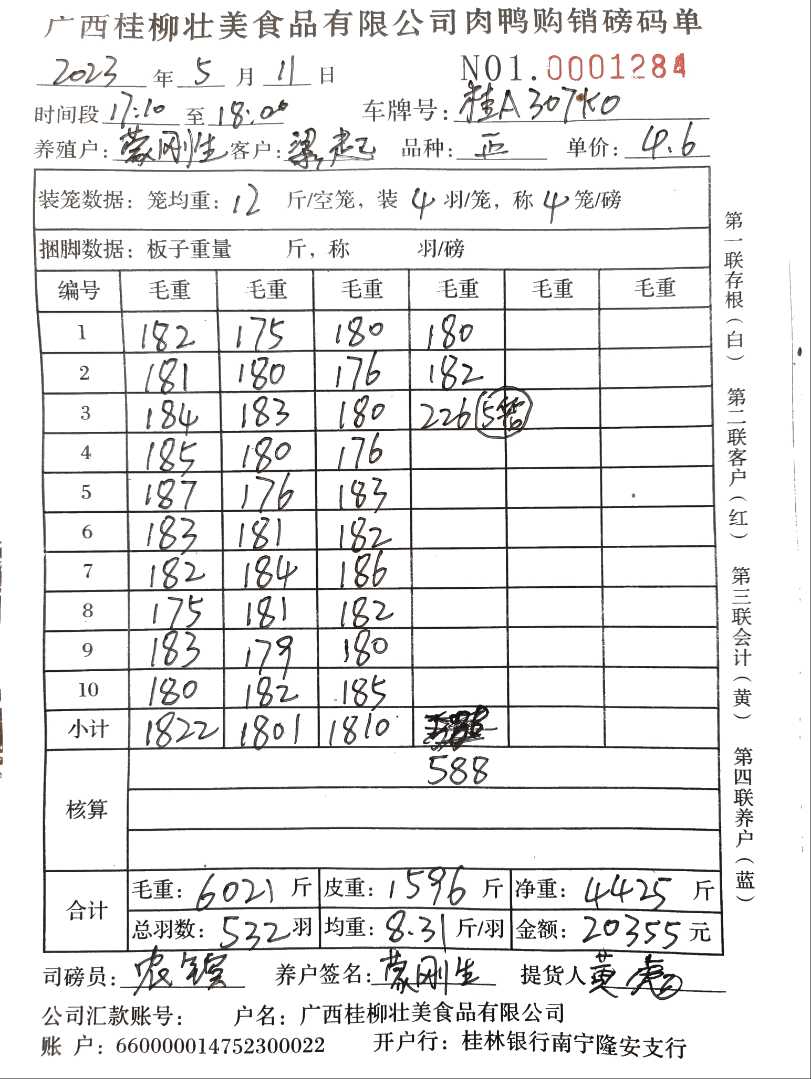 广西桂柳壮美食品有限公司肉鸭购销磅码单
2023 年 5 月 11 日 NO1.0001284
时间段 17:10 至 18:00 车牌号: 桂A307K0
养殖户: 蒙刚生 客户: 梁 品种: 正 单价: 4.6
装笼数据: 笼均重: 12 斤/空笼, 装 4 羽/笼, 称 4 笼/磅
捆脚数据: 板子重量 斤, 称 羽/磅
编号 毛重 毛重 毛重 毛重 毛重 毛重
1 182 175 180 180
2 181 180 176 182
3 184 183 180 226 5笼
4 185 180 176
5 187 176 183
6 183 181 182
7 182 184 186
8 175 181 182
9 183 179 180
10 180 182 185
小计 1822 1801 1810
588
核算
合计 毛重: 6021 斤 皮重: 1596 斤 净重: 4425 斤
总羽数: 532 羽 均重: 8.31 斤/羽 金额: 20355 元
司磅员: 农 养户签名: 蒙刚生 提货人 黄
公司汇款账号: 户名: 广西桂柳壮美食品有限公司
账 户: 660000014752300022 开户行: 桂林银行南宁隆安支行
第一联存根(白) 第二联客户(红) 第三联会计(黄) 第四联养户(蓝)